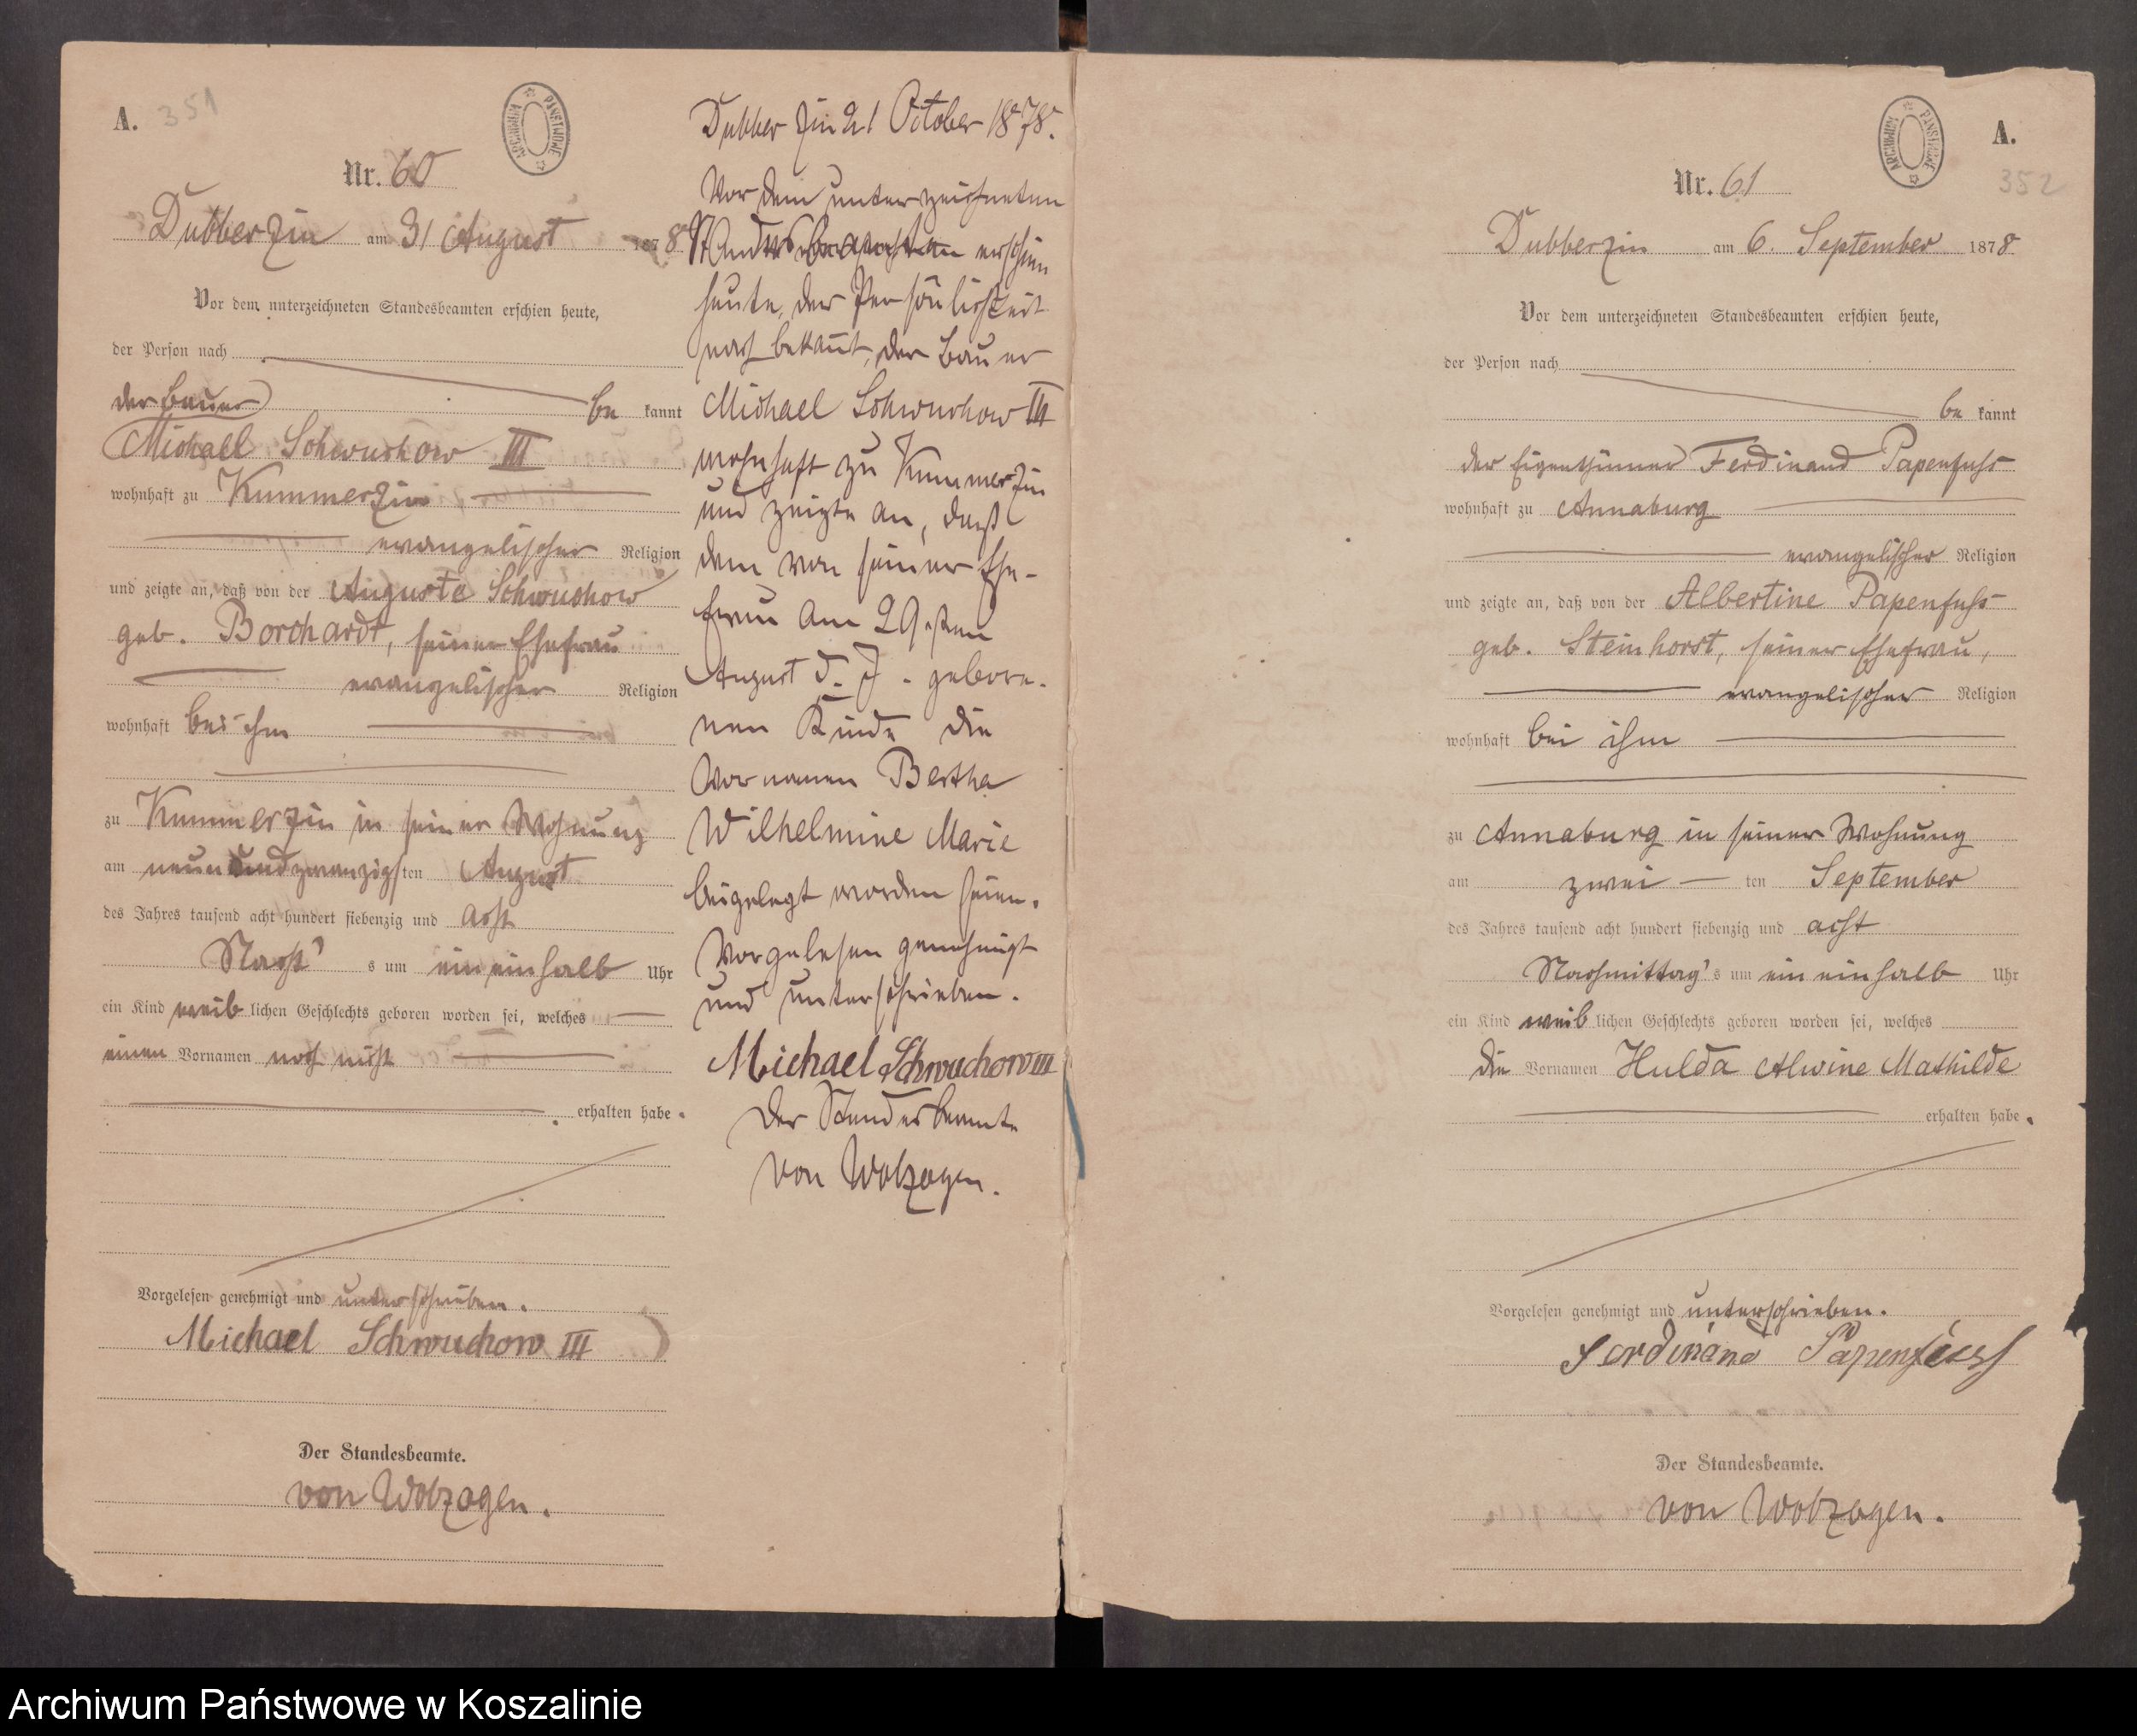 A. 351
ARCHIWUM PAŃSTWOWE
Nr. 60
Dubberzin am 31 August 1878
Vor dem unterzeichneten Standesbeamten erschien heute,
der Person nach
der Bauer be kannt
Michael Schwuchow III
wohnhaft zu Kummerzin
evangelischer Religion
und zeigte an, daß von der Auguste Schwuchow
geb. Borchardt, seiner Ehefrau
evangelischer Religion
wohnhaft bei ihm
zu Kummerzin in seiner Wohnung
am neun und zwanzigsten August
des Jahres tausend acht hundert siebenzig und acht
Nacht's um ein einhalb Uhr
ein Kind weiblichen Geschlechts geboren worden sei, welches
einen Vornamen noch nicht
erhalten habe.
Vorgelesen genehmigt und unterschrieben.
Michael Schwuchow III
Der Standesbeamte.
von Wolzogen.
Dubberzin 21 October 1878.
Vor dem unterzeichneten
Standesbeamten erschien
heute, der Persönlichkeit
nach bekannt, der Bauer
Michael Schwuchow III
wohnhaft zu Kummerzin
und zeigte an, daß
dem von seiner Ehe-
frau am 29sten
August d. J. gebore-
nen Kinde die
Vornamen Bertha
Wilhelmine Marie
beigelegt worden seien.
Vorgelesen genehmigt
und unterschrieben.
Michael Schwuchow III
Der Standesbeamte
von Wolzogen.
ARCHIWUM PAŃSTWOWE
A.
352
Nr. 61
Dubberzin am 6. September 1878
Vor dem unterzeichneten Standesbeamten erschien heute,
der Person nach
be kannt
der Eigenthümer Ferdinand Papenfuhs
wohnhaft zu Annaburg
evangelischer Religion
und zeigte an, daß von der Albertine Papenfuhs
geb. Steinhorst, seiner Ehefrau,
evangelischer Religion
wohnhaft bei ihm
zu Annaburg in seiner Wohnung
am zwei ten September
des Jahres tausend acht hundert siebenzig und acht
Nachmittag's um ein einhalb Uhr
ein Kind weiblichen Geschlechts geboren worden sei, welches
die Vornamen Hulda Alwine Mathilde
erhalten habe.
Vorgelesen genehmigt und unterschrieben.
Ferdinand Papenfuss
Der Standesbeamte.
von Wolzogen.
Archiwum Państwowe w Koszalinie